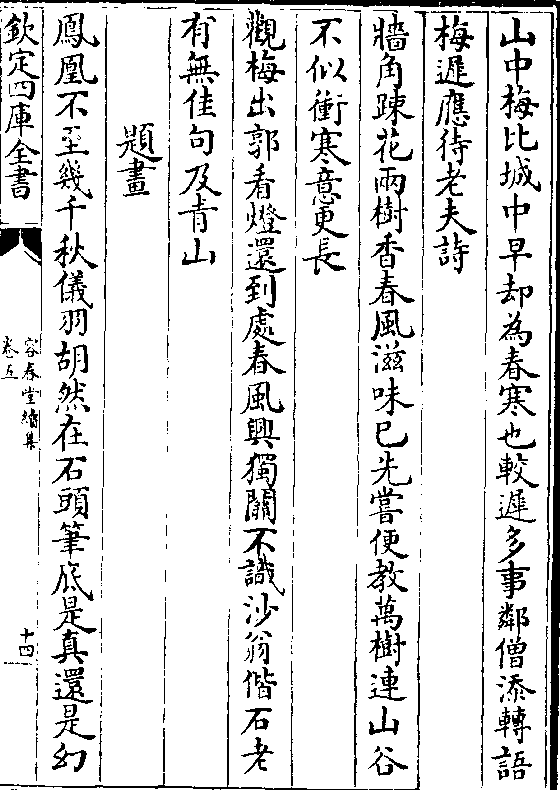 山中梅比城中早却為春寒也較遲多事鄰僧添轉語
梅遲應待老夫詩
牆角踈花兩樹香春風滋味已先嘗便教萬樹連山谷
不似衝寒意更長
觀梅出郭看燈還到處春風興獨關不識沙翁偕石老
有無佳句及青山
題畫
鳳凰不至幾千秋儀羽胡然在石頭筆底是真還是幻
欽定四庫全書
容春堂續集
卷五
十四